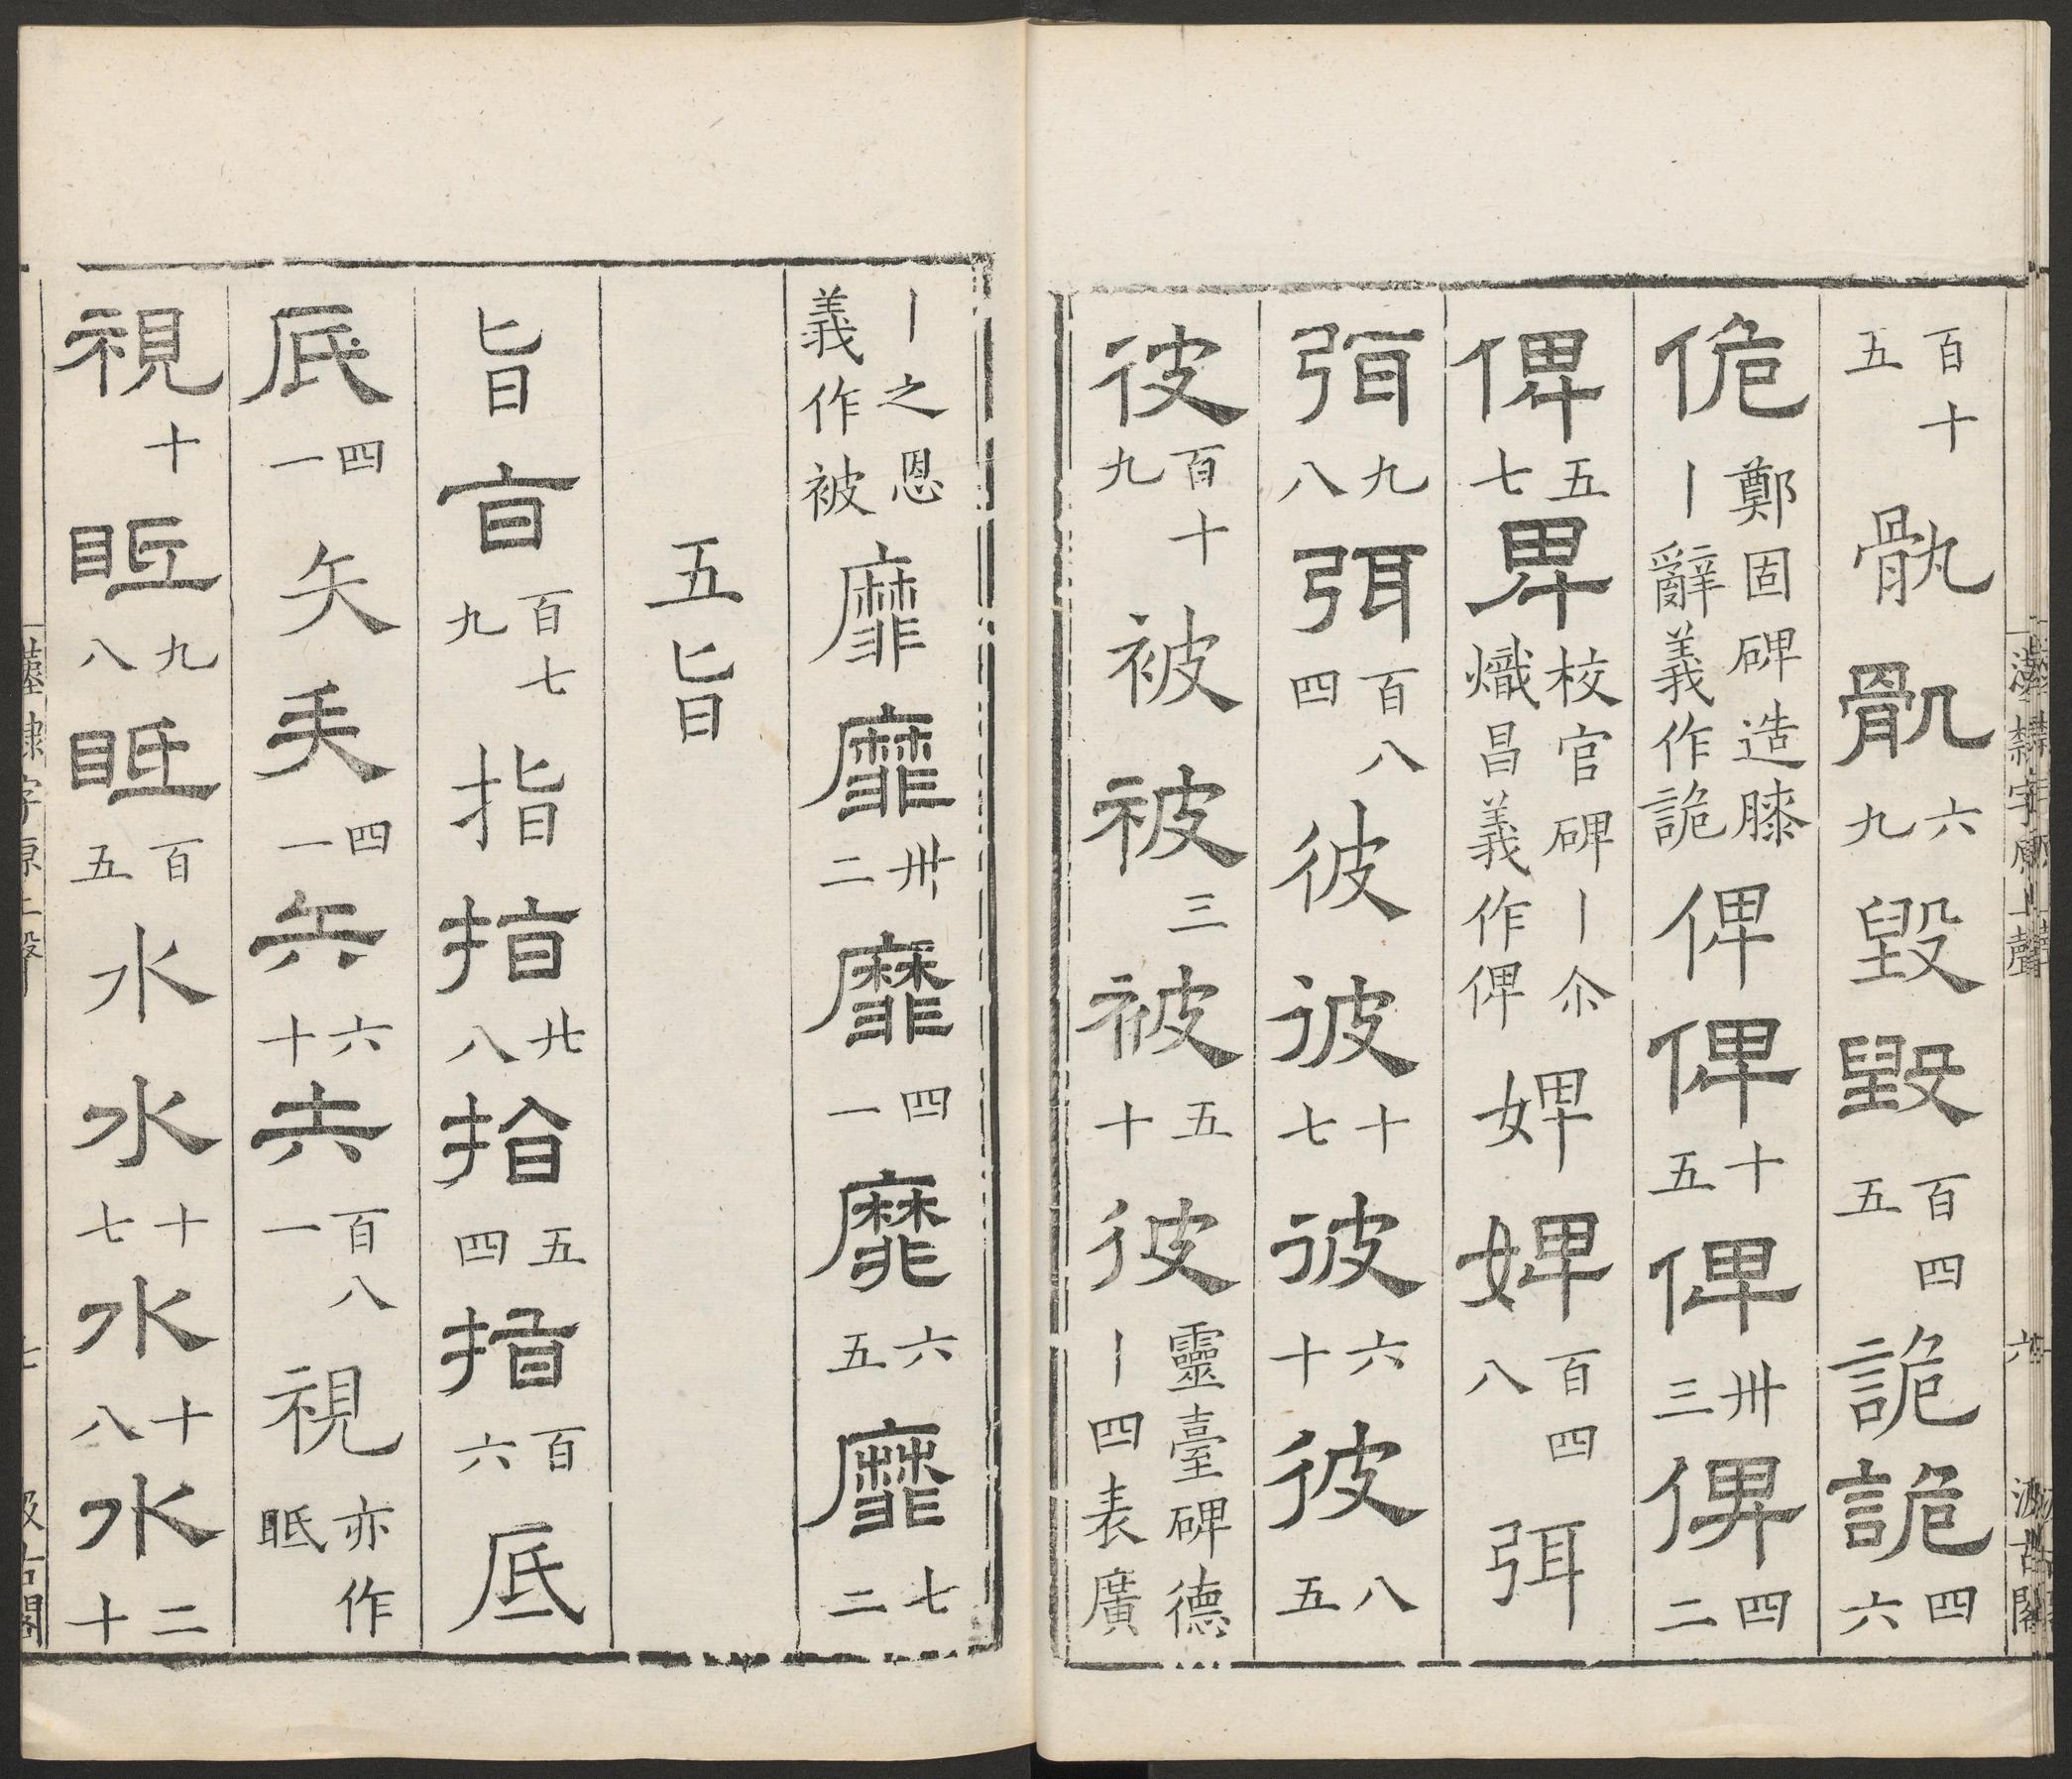 百十五 骫 骩 六九 毀 毀 百四五 詭 詭 四六
佹 鄭固碑造膝丨辭義作詭 俾 俾 十五 俾 卅三 俾 四二
俾 五七 卑 校官碑丨尒熾昌義作俾 婢 婢 百四八 弭
弭 九八 弭 百八四 彼 彼 十七 彼 六十 彼 八五
彼 百十九 被 被 三 被 五十 彼 靈臺碑德丨四表廣
漢隸字源上聲 六 汲古閣
丨之恩義作被 靡 靡 卅二 靡 四一 靡 六五 靡 七二
五旨
旨 旨 百七九 指 指 廿八 指 五四 指 百六 底
底 四一 矢 矢 四一 矢 六十 矢 百八一 視 亦作眡
視 十 眡 九八 眡 百五 水 水 十七 水 十八 水 二十
漢隸字源上聲 七 汲古閣